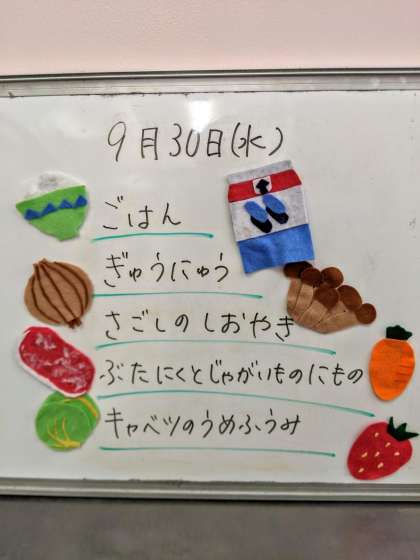 9月30日(水)
ごはん
ぎゅうにゅう
さごしのしおやき
ぶたにくとじゃがいものにもの
キャベツのうめふうみ